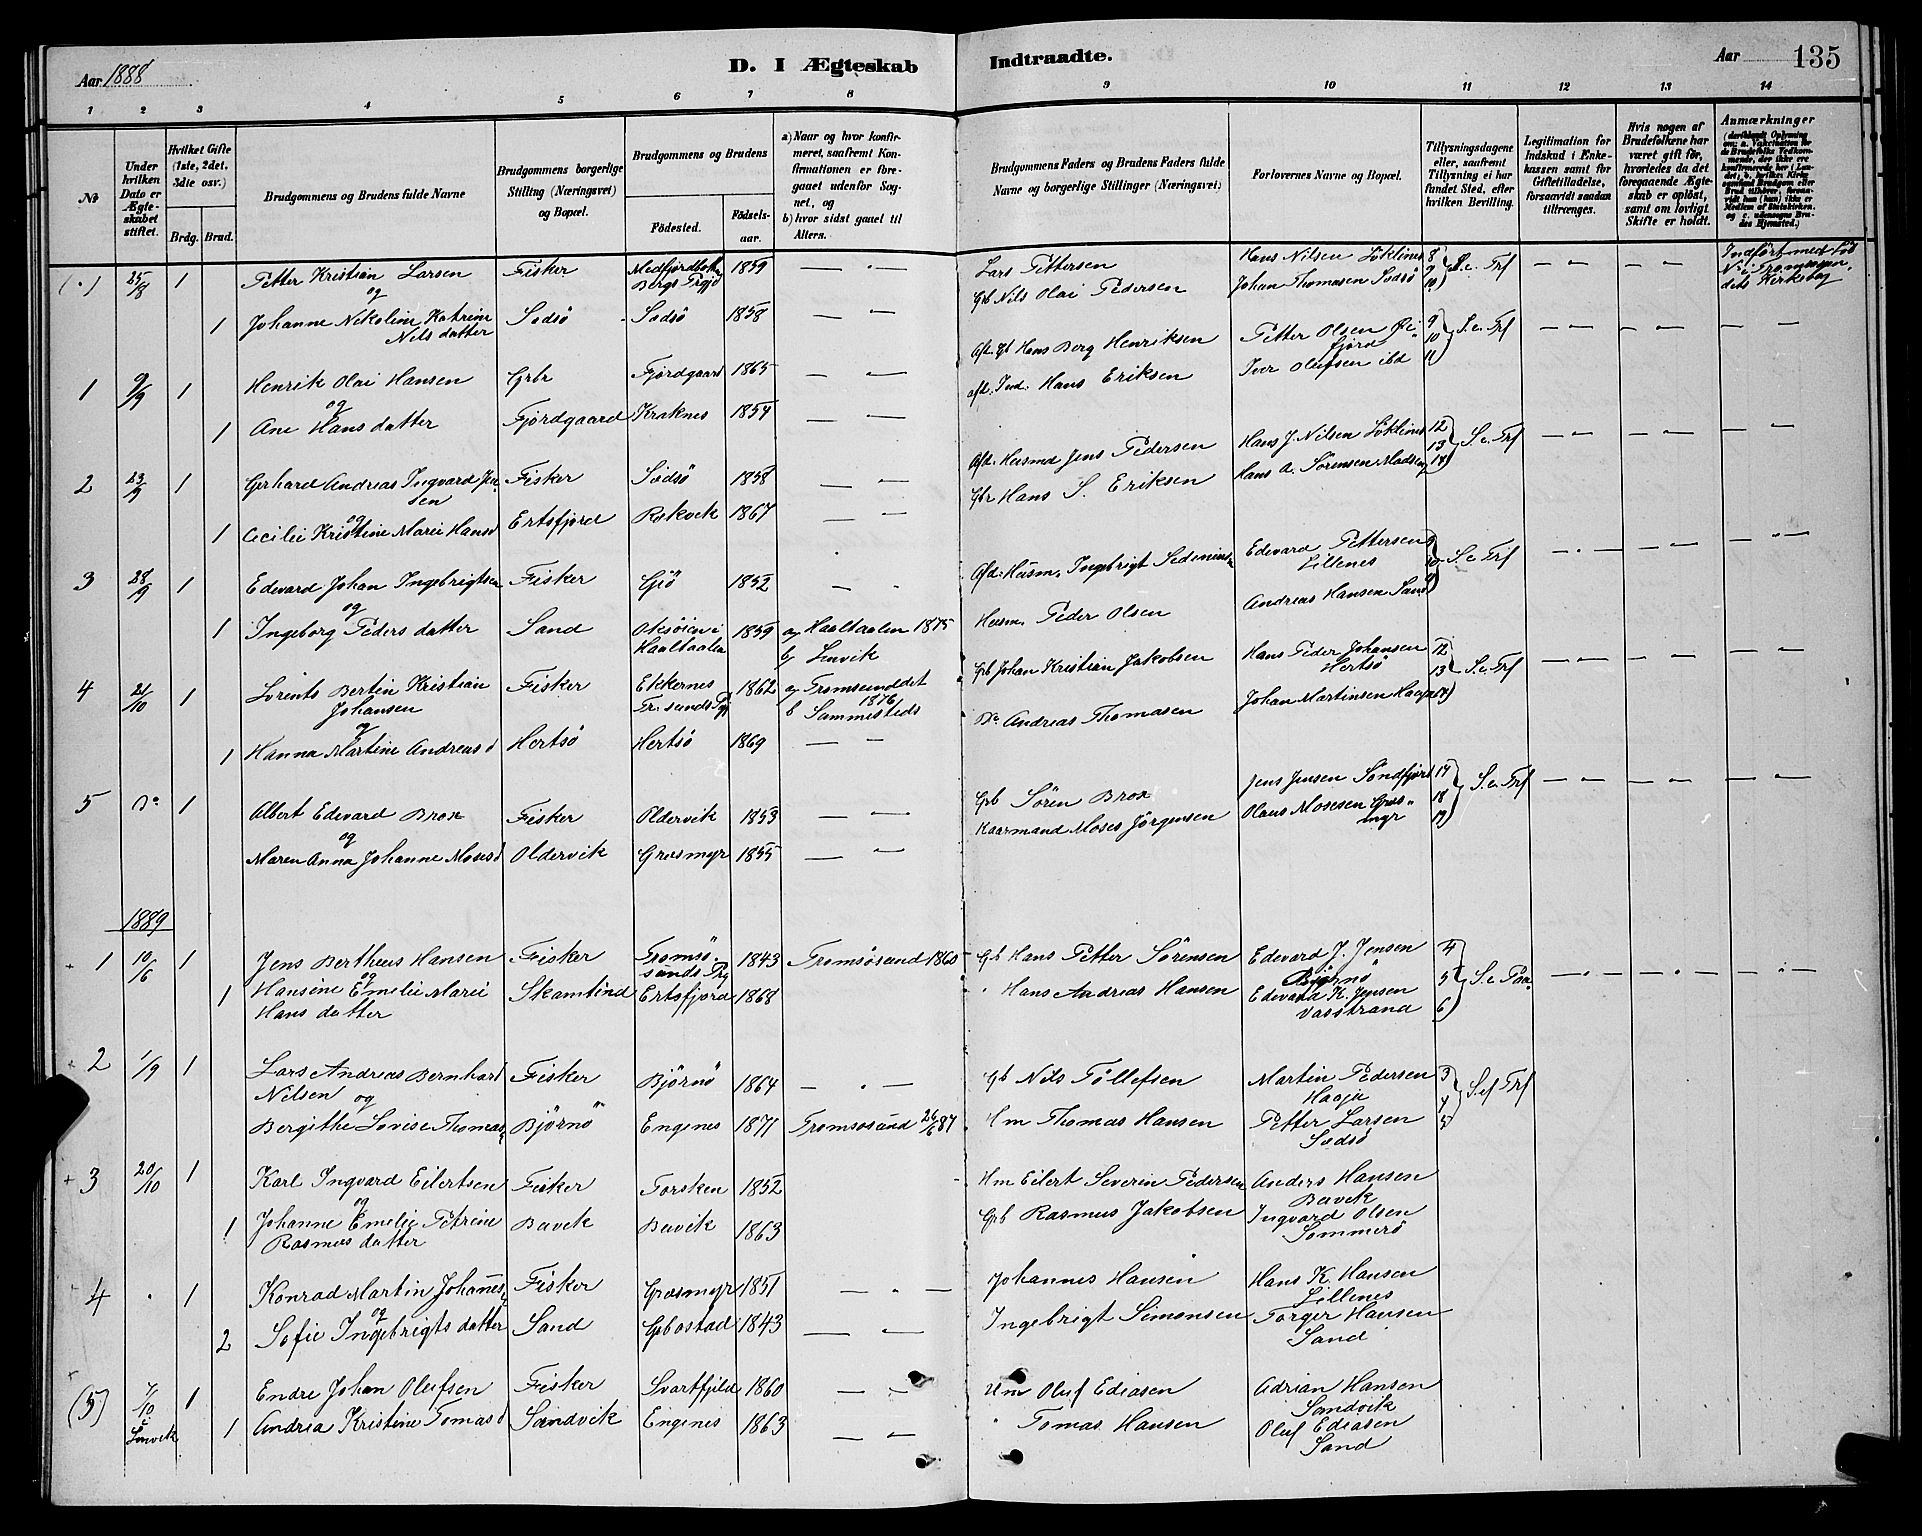 Aar 1888
D. I Ægteskab
Indtraadte.
Aar
135
1 2 3 4 5 6 7 8 9 10 11 12 13 14
No
Under hvilken Dato er Ægteskabet stiftet.
Hvilket Gifte (1ste, 2det, 3die osv.)
Brdg. Brud.
Brudgommens og Brudens fulde Navne
Brudgommens borgerlige Stilling (Næringsvei) og Bopæl.
Brudgommens og Brudens
Fødested. Fødsels-aar.
a) Naar og hvor konfirmeret, saafremt Konfirmationen er foregaaet udenfor Sognet, og
b) hvor sidst gaaet til Alters.
Brudgommens Faders og Brudens Faders fulde Navne og borgerlige Stillinger (Næringsvei)
Forlovernes Navne og Bopæl.
Tillysningsdagene eller, saafremt Tillysning ei har fundet Sted, efter hvilken Bevilling.
Legitimation for Indskud i Enkekassen samt for Giftetilladelse, forsaavidt saadan tiltrænges.
Hvis nogen af Brudefolkene har været gift før, hvorledes da det foregaaende Ægteskab er opløst, samt om lovligt Skifte er holdt.
Anmærkninger
(1) 25/8 1 Petter Kristian Larsen Fisker 1859 — Lars Pettersen Hans Nilsen 8 S. e. Trf — — Indført med
og Johan Thomasen Sodsö 9 10
1 Johanne Nikoline Katrine Sodsö Sodsö 1858 — Grb Nils Olai Pedersen
Nils datter
1 9/9 1 Henrik Olai Hansen Grbr Fjordgaard 1865 — Hans Berg Henriksen Petter Olsen 9 S. e. Trf — — —
og fjord 10
1 Ane Hans datter Fjordgaard Kraknes 1854 — Hans Eriksen Iver Olufsen ibd 11
2 23/9 1 Gerhard Andreas Ingvard Jensen Fisker Sodsö 1858 — Afd. Husmd Jens Pedersen Hans J. Nilsen 12 S. e. Trf — — —
og Hans A. Sörensen 13
1 Cecilie Kristine Marie Hansd Ertsfjord 1867 — Gbr Hans S. Eriksen 14
3 28/9 1 Edevard Johan Ingebrigtsen Fisker Gjö 1852 — Afd. Husm. Ingebrigt Edevard Pettersen 9 S. e. Trf — — —
og Lillenes 10
1 Ingeborg Peders datter Sand Haaltaalen 1859 a, Haaltaalen 1875 Husm. Peder Olsen Andreas Hansen Sand
b, Lenvik
4 21/10 1 Lorents Bertin Kristian Fisker Ekkernes 1862 a, Tromsunddet Grb Johan Kristian Jakobsen Hans Peder Johansen 12 S. e. Trf — — —
Johansen 1876 Hertsö 13
og b Sammesteds Do Andreas Thomasen Johan Martinsen 14
1 Hanna Martine Andreasd Hertsö Hertsö 1869 —
5 Do 1 Albert Edevard Brox Fisker Oldervik 1853 — Grb Sören Brox Jens Jensen 17 S. e. Trf — — —
og Olaus Mosesen Græsmyr 18
Maren Anna Johanne Mosesd Oldervik Græsmyr 1855 — Kaarmand Moses Jörgensen 19
1889
+ 1 10/6 1 Jens Bertheus Hansen Fisker Tromsösunds Prg 1843 Tromsøsund 1860 Gb Hans Petter Sörensen Edevard J. Jensen 4 S. e. — — —
og Björnö 5
1 Hansine Emelie Marie Skamtind Ertsfjord 1868 " Hans Andreas Hansen Edevard K. Jensen 6
Hans datter Vasstrand
+ 2 1/9 1 Lars Andreas Bernhard Fisker Björnö 1864 — Gb Nils Töllefsen Martin Pedersen 3 S. ef Trf
Nilsen og Haaja 4
Bergithe Lovise Thomas Björnö Engenes 1871 Tromsøsund 26/6 87 Hm Thomas Hansen Petter Larsen 5
Sodsö
+ 3 20/10 1 Karl Ingvard Eilertsen Fisker Torsken 1852 Hm Eilert Severin Pedersen Anders Hansen
og Buvik
1 Johanne Emelie Petrine Buvik Buvik 1863 Grb Rasmus Jakobsen Ingvard Olsen
Rasmus datter Sommerö
4 " 1 Konrad Martin Johannes Fisker Græsmyr 1851 — Johannes Hansen Hans K. Hansen
og Lillenes
2 Sofie Ingebrigts datter Sand Gibostad 1843 — Ingebrigt Simonsen Torger Hansen
Sand
(5) 7/10 1 Endre Johan Olufsen Fisker Svartfjeld 1860 — Hm Oluf Ediasen Adrian Hansen
i Lenvik Sandvik
1 Andrea Kristine Tomasd Sandvik Engenes 1863 — " Tomas Hansen Oluf Ediasen
Sand